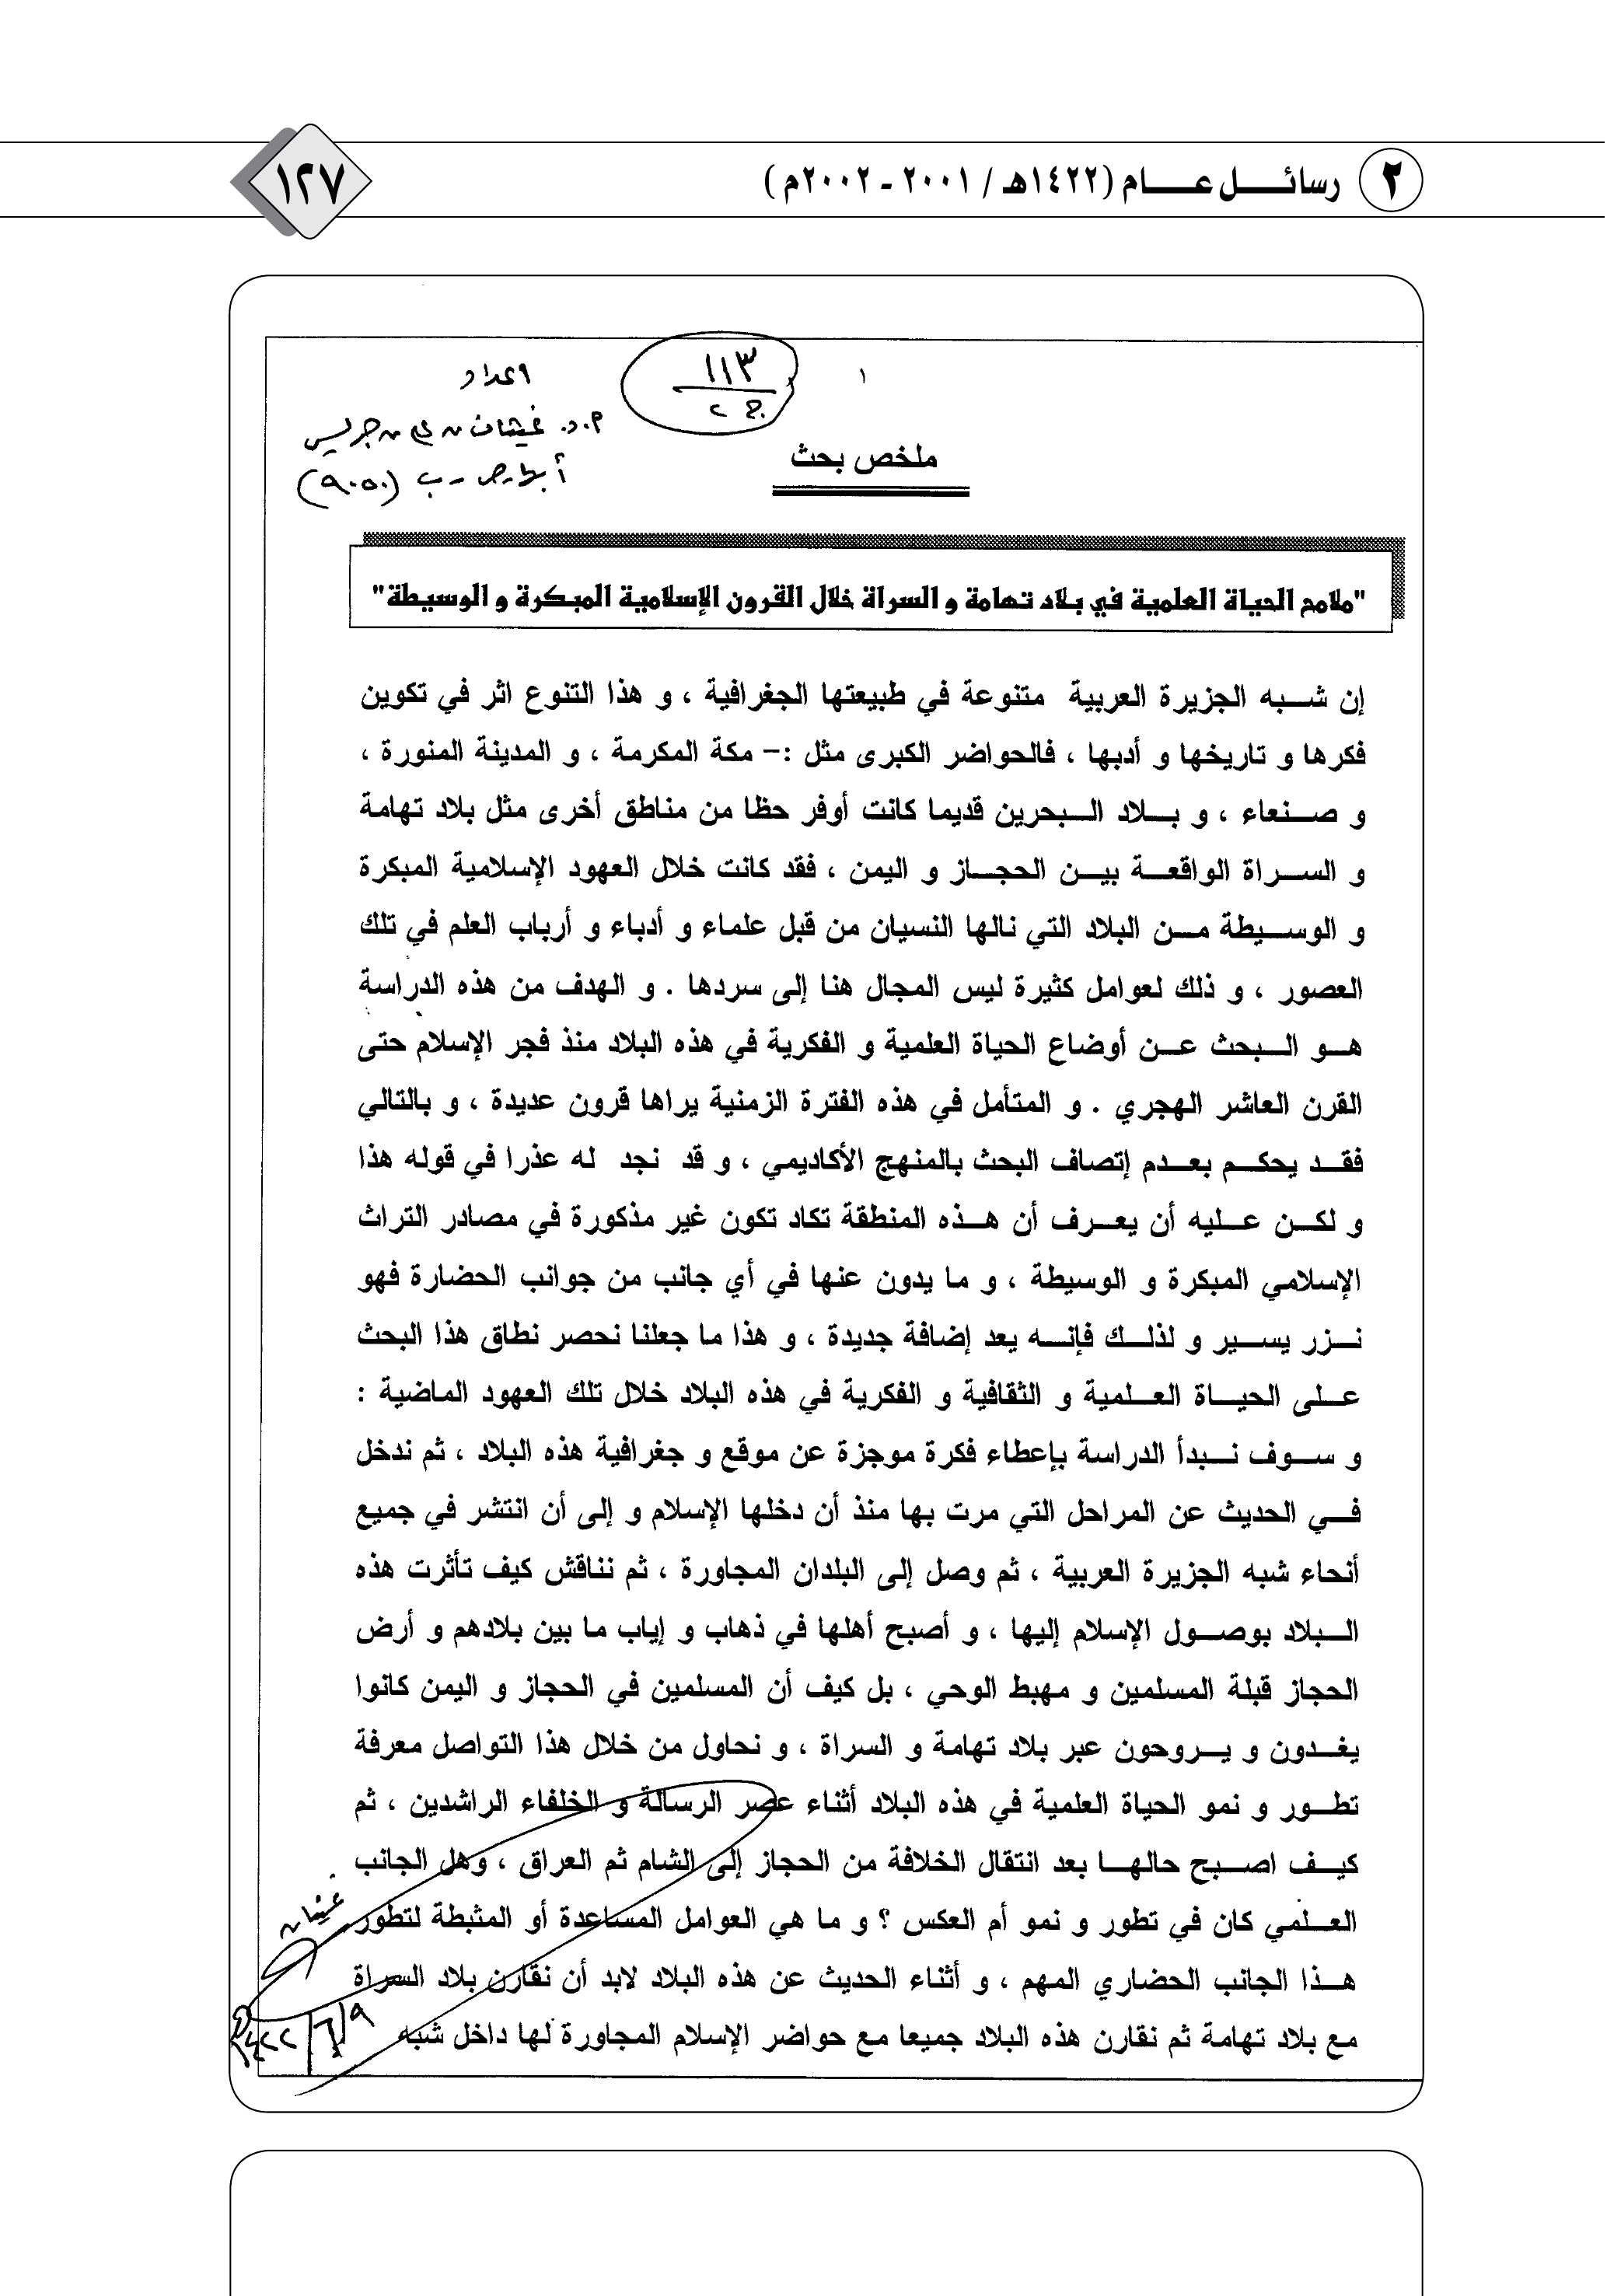 ٢ رسائل عام (١٤٢٢هـ / ٢٠٠١ - ٢٠٠٢م )
١٢٧
١
١١٣
ج ٢
غيثان بن علي بن جريس
أبها ص . ب (٩٠٥٠)
ملخص بحث
"ملامح الحياة العلمية في بلاد تهامة و السراة خلال القرون الإسلامية المبكرة و الوسيطة"
إن شبه الجزيرة العربية متنوعة في طبيعتها الجغرافية ، و هذا التنوع اثر في تكوين
فكرها و تاريخها و أدبها ، فالحواضر الكبرى مثل :- مكة المكرمة ، و المدينة المنورة ،
و صنعاء ، و بلاد البحرين قديما كانت أوفر حظا من مناطق أخرى مثل بلاد تهامة
و السراة الواقعة بين الحجاز و اليمن ، فقد كانت خلال العهود الإسلامية المبكرة
و الوسيطة من البلاد التي نالها النسيان من قبل علماء و أدباء و أرباب العلم في تلك
العصور ، و ذلك لعوامل كثيرة ليس المجال هنا إلى سردها . و الهدف من هذه الدراسة
هو البحث عن أوضاع الحياة العلمية و الفكرية في هذه البلاد منذ فجر الإسلام حتى
القرن العاشر الهجري . و المتأمل في هذه الفترة الزمنية يراها قرون عديدة ، و بالتالي
فقد يحكم بعدم إتصاف البحث بالمنهج الأكاديمي ، و قد نجد له عذرا في قوله هذا
و لكن عليه أن يعرف أن هذه المنطقة تكاد تكون غير مذكورة في مصادر التراث
الإسلامي المبكرة و الوسيطة ، و ما يدون عنها في أي جانب من جوانب الحضارة فهو
نزر يسير و لذلك فإنه يعد إضافة جديدة ، و هذا ما جعلنا نحصر نطاق هذا البحث
على الحياة العلمية و الثقافية و الفكرية في هذه البلاد خلال تلك العهود الماضية :
و سوف نبدأ الدراسة بإعطاء فكرة موجزة عن موقع و جغرافية هذه البلاد ، ثم ندخل
في الحديث عن المراحل التي مرت بها منذ أن دخلها الإسلام و إلى أن انتشر في جميع
أنحاء شبه الجزيرة العربية ، ثم وصل إلى البلدان المجاورة ، ثم نناقش كيف تأثرت هذه
البلاد بوصول الإسلام إليها ، و أصبح أهلها في ذهاب و إياب ما بين بلادهم و أرض
الحجاز قبلة المسلمين و مهبط الوحي ، بل كيف أن المسلمين في الحجاز و اليمن كانوا
يغدون و يروحون عبر بلاد تهامة و السراة ، و نحاول من خلال هذا التواصل معرفة
تطور و نمو الحياة العلمية في هذه البلاد أثناء عصر الرسالة و الخلفاء الراشدين ، ثم
كيف اصبح حالها بعد انتقال الخلافة من الحجاز إلى الشام ثم العراق ، وهل الجانب
العلمي كان في تطور و نمو أم العكس ؟ و ما هي العوامل المساعدة أو المثبطة لتطور
هذا الجانب الحضاري المهم ، و أثناء الحديث عن هذه البلاد لابد أن نقارن بلاد السراة
مع بلاد تهامة ثم نقارن هذه البلاد جميعا مع حواضر الإسلام المجاورة لها داخل شبه
غيثان
٩/٦/١٤٢٢هـ